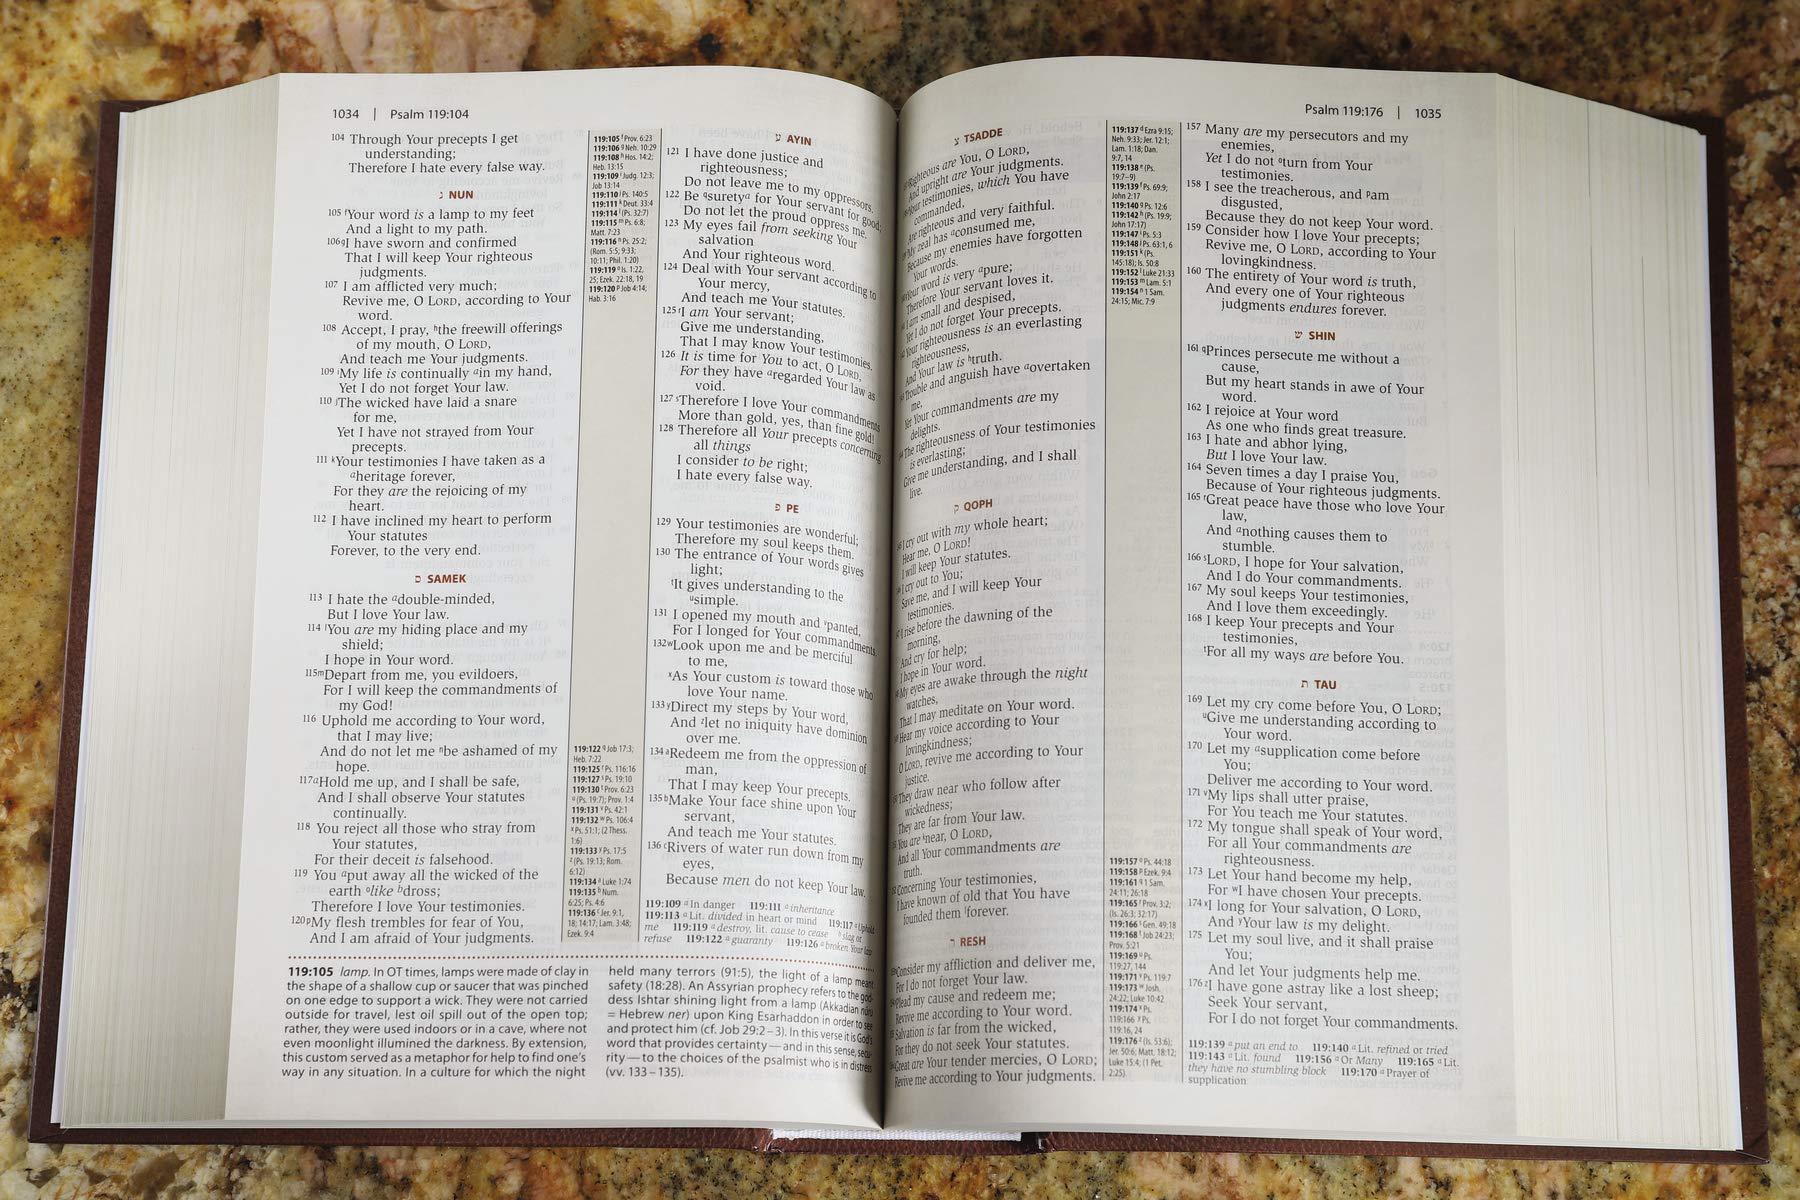 1034 | Psalm 119:104
104 Through Your precepts I get
understanding;
Therefore I hate every false way.
נ NUN
105 fYour word is a lamp to my feet
And a light to my path.
106 gI have sworn and confirmed
That I will keep Your righteous
judgments.
107 I am afflicted very much;
Revive me, O LORD, according to Your
word.
108 Accept, I pray, hthe freewill offerings
of my mouth, O LORD,
And teach me Your judgments.
109 iMy life is continually ain my hand,
Yet I do not forget Your law.
110 jThe wicked have laid a snare
for me,
Yet I have not strayed from Your
precepts.
111 kYour testimonies I have taken as a
aheritage forever,
For they are the rejoicing of my
heart.
112 I have inclined my heart to perform
Your statutes
Forever, to the very end.
ס SAMEK
113 I hate the adouble-minded,
But I love Your law.
114 lYou are my hiding place and my
shield;
I hope in Your word.
115 mDepart from me, you evildoers,
For I will keep the commandments of
my God!
116 Uphold me according to Your word,
that I may live;
And do not let me nbe ashamed of my
hope.
117 aHold me up, and I shall be safe,
And I shall observe Your statutes
continually.
118 You reject all those who stray from
Your statutes,
For their deceit is falsehood.
119 You aput away all the wicked of the
earth olike bdross;
Therefore I love Your testimonies.
120 pMy flesh trembles for fear of You,
And I am afraid of Your judgments.
119:105 f Prov. 6:23
119:106 g Neh. 10:29
119:108 h Hos. 14:2;
Heb. 13:15
119:109 i Judg. 12:3;
Job 13:14
119:110 j Ps. 140:5
119:111 k Deut. 33:4
119:114 l (Ps. 32:7)
119:115 m Ps. 6:8;
Matt. 7:23
119:116 n Ps. 25:2;
(Rom. 5:5; 9:33;
10:11; Phil. 1:20)
119:119 o Is. 1:22,
25; Ezek. 22:18, 19
119:120 p Job 4:14;
Hab. 3:16
119:122 q Job 17:3;
Heb. 7:22
119:125 r Ps. 116:16
119:127 s Ps. 19:10
119:130 t Prov. 6:23
u (Ps. 19:7); Prov. 1:4
119:131 v Ps. 42:1
119:132 w Ps. 106:4
x Ps. 51:1; (2 Thess.
1:6)
119:133 y Ps. 17:5
z (Ps. 19:13; Rom.
6:12)
119:134 a Luke 1:74
119:135 b Num.
6:25; Ps. 4:6
119:136 c Jer. 9:1,
18; 14:17; Lam. 3:48;
Ezek. 9:4
ע AYIN
121 I have done justice and
righteousness;
Do not leave me to my oppressors.
122 Be qsuretya for Your servant for good;
Do not let the proud oppress me.
123 My eyes fail from seeking Your
salvation
And Your righteous word.
124 Deal with Your servant according to
Your mercy,
And teach me Your statutes.
125 rI am Your servant;
Give me understanding,
That I may know Your testimonies.
126 It is time for You to act, O LORD,
For they have aregarded Your law as
void.
127 sTherefore I love Your commandments
More than gold, yes, than fine gold!
128 Therefore all Your precepts concerning
all things
I consider to be right;
I hate every false way.
פ PE
129 Your testimonies are wonderful;
Therefore my soul keeps them.
130 The entrance of Your words gives
light;
tIt gives understanding to the
usimple.
131 I opened my mouth and vpanted,
For I longed for Your commandments.
132 wLook upon me and be merciful
to me,
xAs Your custom is toward those who
love Your name.
133 yDirect my steps by Your word,
And zlet no iniquity have dominion
over me.
134 aRedeem me from the oppression of
man,
That I may keep Your precepts.
135 bMake Your face shine upon Your
servant,
And teach me Your statutes.
136 cRivers of water run down from my
eyes,
Because men do not keep Your law.
119:109 a In danger 119:111 a inheritance
119:113 a Lit. divided in heart or mind 119:117 a Uphold
me 119:119 a destroy, lit. cause to cease b slag or
refuse 119:122 a guaranty 119:126 a broken Your law
119:105 lamp. In OT times, lamps were made of clay in
the shape of a shallow cup or saucer that was pinched
on one edge to support a wick. They were not carried
outside for travel, lest oil spill out of the open top;
rather, they were used indoors or in a cave, where not
even moonlight illumined the darkness. By extension,
this custom served as a metaphor for help to find one's
way in any situation. In a culture for which the night
held many terrors (91:5), the light of a lamp meant
safety (18:28). An Assyrian prophecy refers to the god-
dess Ishtar shining light from a lamp (Akkadian nūru
= Hebrew ner) upon King Esarhaddon in order to see
and protect him (cf. Job 29:2–3). In this verse it is God's
word that provides certainty—and in this sense, secu-
rity—to the choices of the psalmist who is in distress
(vv. 133–135).
Psalm 119:176 | 1035
צ TSADDE
Righteous are You, O LORD,
And upright are Your judgments.
Your testimonies, which You have
commanded,
Are righteous and very faithful.
My zeal has aconsumed me,
Because my enemies have forgotten
Your words.
Your word is very apure;
Therefore Your servant loves it.
I am small and despised,
Yet I do not forget Your precepts.
Your righteousness is an everlasting
righteousness,
And Your law is htruth.
Trouble and anguish have aovertaken
me,
Yet Your commandments are my
delights.
The righteousness of Your testimonies
is everlasting;
Give me understanding, and I shall
live.
ק QOPH
I cry out with my whole heart;
Hear me, O LORD!
I will keep Your statutes.
I cry out to You;
Save me, and I will keep Your
testimonies.
I rise before the dawning of the
morning,
And cry for help;
I hope in Your word.
My eyes are awake through the night
watches,
That I may meditate on Your word.
Hear my voice according to Your
lovingkindness;
O LORD, revive me according to Your
justice.
They draw near who follow after
wickedness;
They are far from Your law.
You are knear, O LORD,
And all Your commandments are
truth.
Concerning Your testimonies,
I have known of old that You have
founded them lforever.
ר RESH
Consider my affliction and deliver me,
For I do not forget Your law.
Plead my cause and redeem me;
Revive me according to Your word.
Salvation is far from the wicked,
For they do not seek Your statutes.
Great are Your tender mercies, O LORD;
Revive me according to Your judgments.
119:137 d Ezra 9:15;
Neh. 9:33; Jer. 12:1;
Lam. 1:18; Dan.
9:7, 14
119:138 e (Ps.
19:7–9)
119:139 f Ps. 69:9;
John 2:17
119:140 g Ps. 12:6
119:142 h (Ps. 19:9;
John 17:17)
119:147 i Ps. 5:3
119:148 j Ps. 63:1, 6
119:151 k (Ps.
145:18); Is. 50:8
119:152 l Luke 21:33
119:153 m Lam. 5:1
119:154 n 1 Sam.
24:15; Mic. 7:9
119:157 o Ps. 44:18
119:158 p Ezek. 9:4
119:161 q 1 Sam.
24:11; 26:18
119:165 r Prov. 3:2;
(Is. 26:3; 32:17)
119:166 s Gen. 49:18
119:168 t Job 24:23;
Prov. 5:21
119:169 u Ps.
119:27, 144
119:171 v Ps. 119:7
119:173 w Josh.
24:22; Luke 10:42
119:174 x Ps.
119:166 y Ps.
119:16, 24
119:176 z (Is. 53:6);
Jer. 50:6; Matt. 18:12;
Luke 15:4; (1 Pet.
2:25)
157 Many are my persecutors and my
enemies,
Yet I do not oturn from Your
testimonies.
158 I see the treacherous, and pam
disgusted,
Because they do not keep Your word.
159 Consider how I love Your precepts;
Revive me, O LORD, according to Your
lovingkindness.
160 The entirety of Your word is truth,
And every one of Your righteous
judgments endures forever.
ש SHIN
161 qPrinces persecute me without a
cause,
But my heart stands in awe of Your
word.
162 I rejoice at Your word
As one who finds great treasure.
163 I hate and abhor lying,
But I love Your law.
164 Seven times a day I praise You,
Because of Your righteous judgments.
165 rGreat peace have those who love Your
law,
And anothing causes them to
stumble.
166 sLORD, I hope for Your salvation,
And I do Your commandments.
167 My soul keeps Your testimonies,
And I love them exceedingly.
168 I keep Your precepts and Your
testimonies,
tFor all my ways are before You.
ת TAU
169 Let my cry come before You, O LORD;
uGive me understanding according to
Your word.
170 Let my asupplication come before
You;
Deliver me according to Your word.
171 vMy lips shall utter praise,
For You teach me Your statutes.
172 My tongue shall speak of Your word,
For all Your commandments are
righteousness.
173 Let Your hand become my help,
For wI have chosen Your precepts.
174 xI long for Your salvation, O LORD,
And yYour law is my delight.
175 Let my soul live, and it shall praise
You;
And let Your judgments help me.
176 zI have gone astray like a lost sheep;
Seek Your servant,
For I do not forget Your commandments.
119:139 a put an end to 119:140 a Lit. refined or tried
119:143 a Lit. found 119:156 a Or Many 119:165 a Lit.
they have no stumbling block 119:170 a Prayer of
supplication